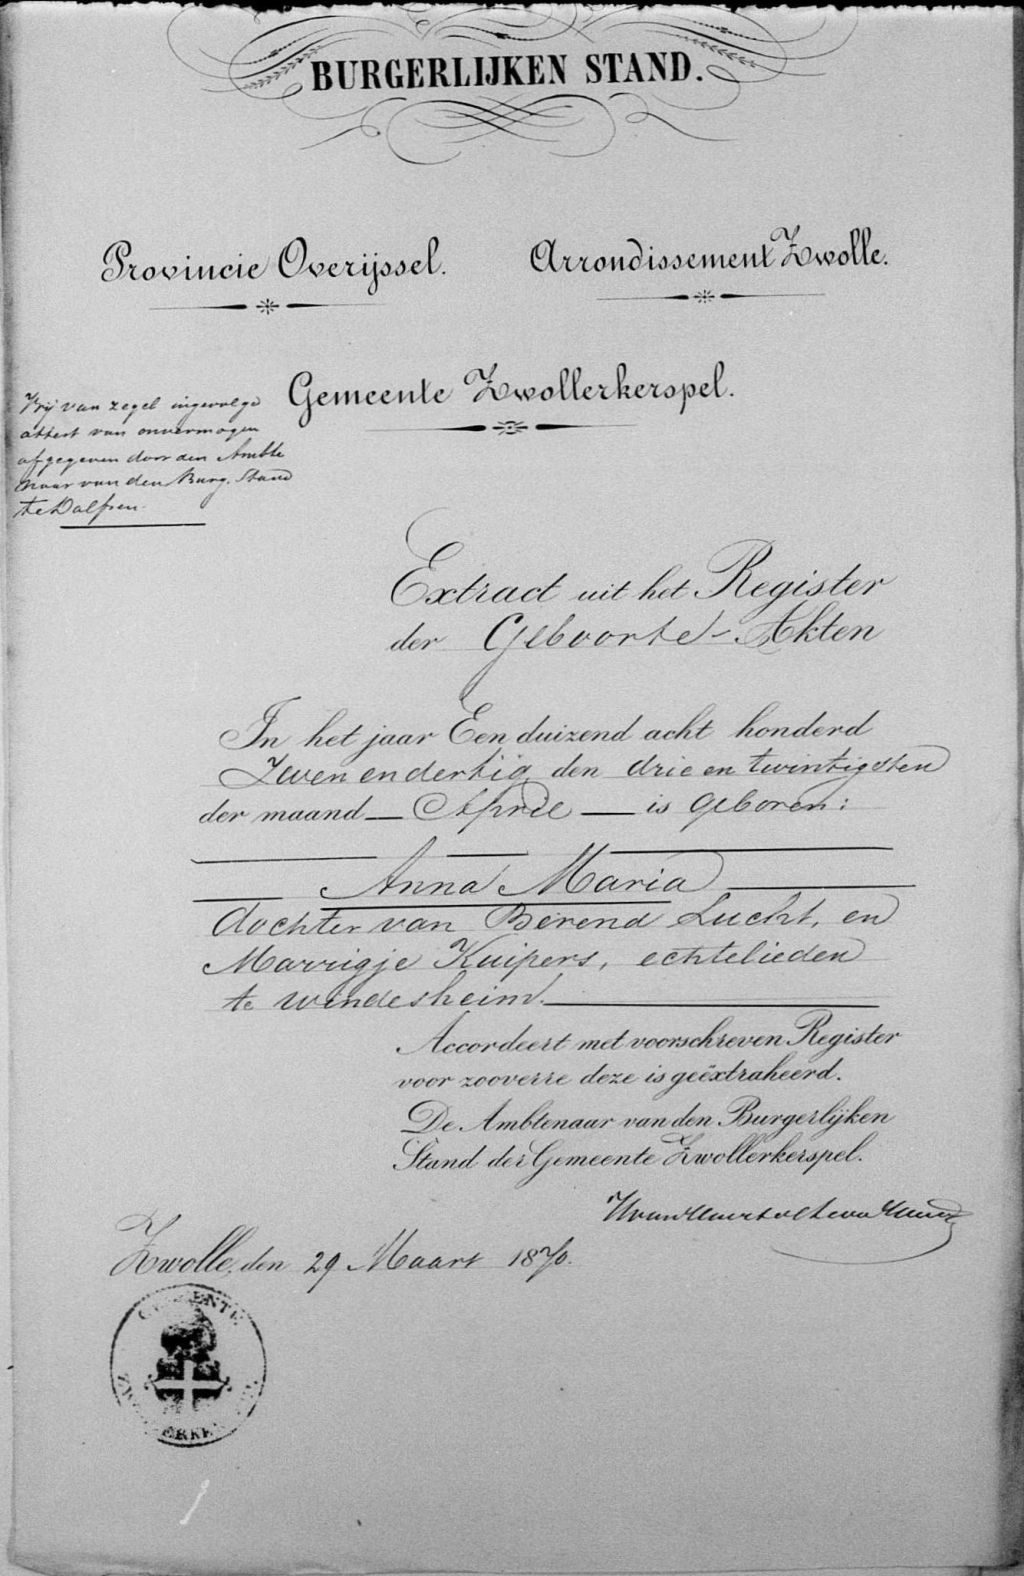 BURGERLIJKEN STAND.
Provincie Overijssel. Arrondissement Zwolle.
Gemeente Zwollerkerspel.
Vrij van zegel ingevolge
attest van onvermogen
afgegeven door den Ambte
naar van den Burg. Stand
te Dalfsen.
Extract uit het Register
der Geboorte-Akten
In het jaar Een duizend acht honderd
Zeven en dertig den drie en twintigsten
der maand April is geboren:
Anna Maria
dochter van Berend Lucht, en
Marrigje Kuipers, echtelieden
te Windesheim.
Accordeert met voorschreven Register
voor zooverre deze is geëxtraheerd.
De Ambtenaar van den Burgerlijken
Stand der Gemeente Zwollerkerspel.
Zwolle, den 29 Maart 1870.
GEMEENTE